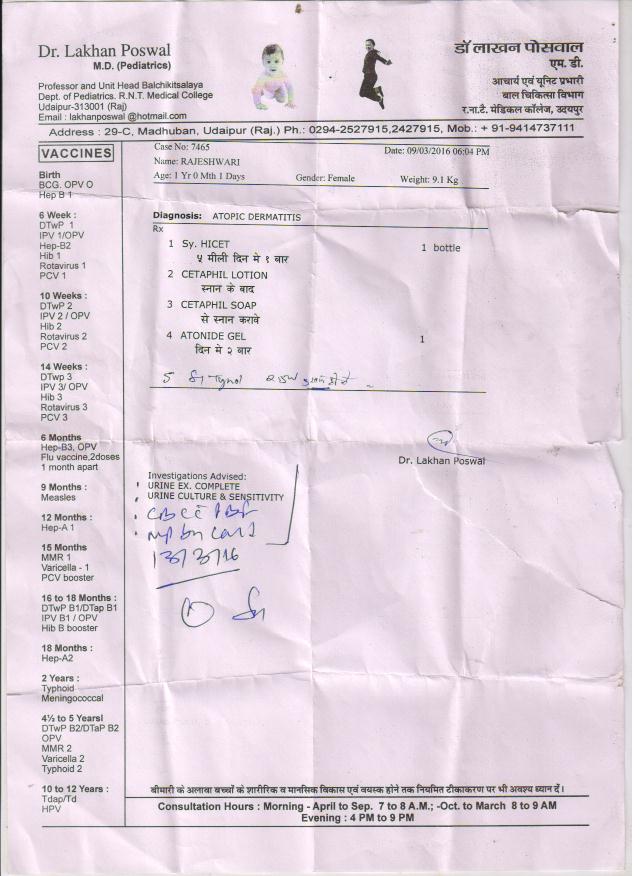 Dr. Lakhan Poswal
M.D. (Pediatrics)
Professor and Unit Head Balchikitsalaya
Dept. of Pediatrics. R.N.T. Medical College
Udaipur-313001 (Raj)
Email : lakhanposwal @hotmail.com
डॉ लाखन पोसवाल
एम. डी.
आचार्य एवं यूनिट प्रभारी
बाल चिकित्सा विभाग
र.ना.टै. मेडिकल कॉलेज, उदयपुर
Address : 29-C, Madhuban, Udaipur (Raj.) Ph.: 0294-2527915,2427915, Mob.: + 91-9414737111
VACCINES
Birth
BCG. OPV O
Hep B 1
6 Week :
DTwP 1
IPV 1/OPV
Hep-B2
Hib 1
Rotavirus 1
PCV 1
10 Weeks :
DTwP 2
IPV 2 / OPV
Hib 2
Rotavirus 2
PCV 2
14 Weeks :
DTwp 3
IPV 3/ OPV
Hib 3
Rotavirus 3
PCV 3
6 Months
Hep-B3, OPV
Flu vaccine,2doses
1 month apart
9 Months :
Measles
12 Months :
Hep-A 1
15 Months
MMR 1
Varicella - 1
PCV booster
16 to 18 Months :
DTwP B1/DTap B1
IPV B1 / OPV
Hib B booster
18 Months :
Hep-A2
2 Years :
Typhoid
Meningococcal
4½ to 5 Yearsl
DTwP B2/DTaP B2
OPV
MMR 2
Varicella 2
Typhoid 2
10 to 12 Years :
Tdap/Td
HPV
Case No: 7465 Date: 09/03/2016 06:04 PM
Name: RAJESHWARI
Age: 1 Yr 0 Mth 1 Days Gender: Female Weight: 9.1 Kg
Diagnosis: ATOPIC DERMATITIS
Rx
1 Sy. HICET 1 bottle
५ मीली दिन मे १ बार
2 CETAPHIL LOTION
स्नान के बाद
3 CETAPHIL SOAP
से स्नान करावे
4 ATONIDE GEL 1
दिन मे २ बार
5
Dr. Lakhan Poswal
Investigations Advised:
URINE EX. COMPLETE
URINE CULTURE & SENSITIVITY
13/3/16
बीमारी के अलावा बच्चों के शारीरिक व मानसिक विकास एवं वयस्क होने तक नियमित टीकाकरण पर भी अवश्य ध्यान दें।
Consultation Hours : Morning - April to Sep. 7 to 8 A.M.; -Oct. to March 8 to 9 AM
Evening : 4 PM to 9 PM